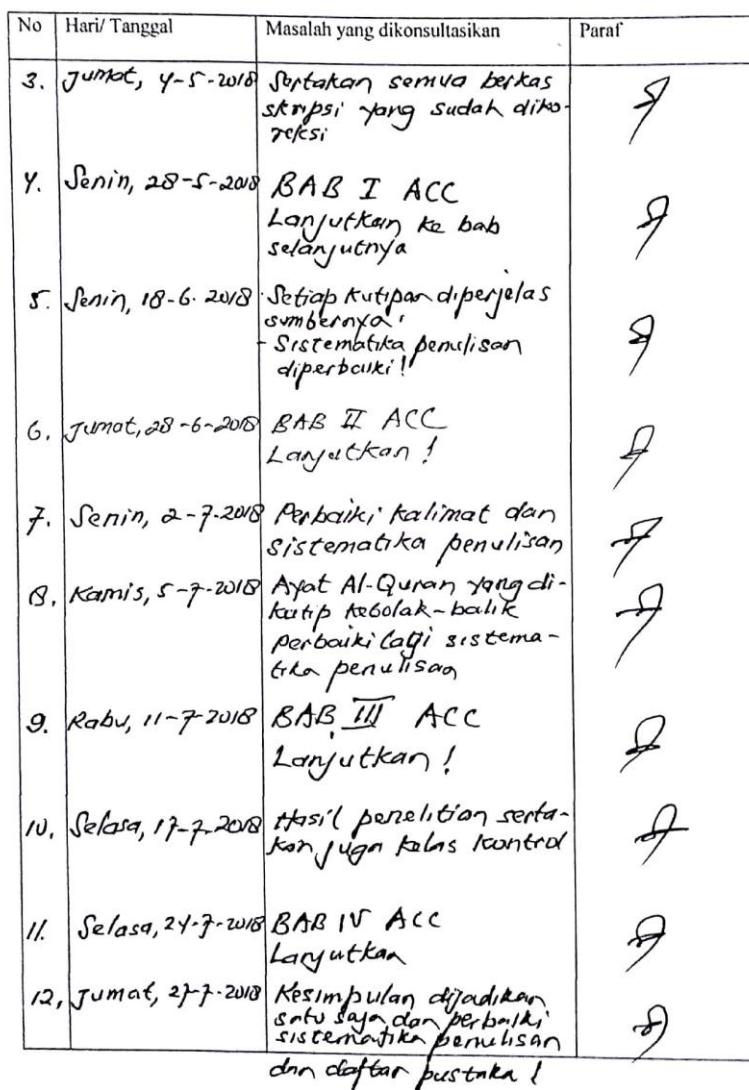 No Hari/ Tanggal Masalah yang dikonsultasikan Paraf
3. Jumat, 4-5-2018 Sertakan semua berkas
skripsi yang sudah diko-
reksi
4. Senin, 28-5-2018 BAB I ACC
Lanjutkan ke bab
selanjutnya
5. Senin, 18-6-2018 - Setiap kutipan diperjelas
sumbernya.
- Sistematika penulisan
diperbaiki!
6. Jumat, 28-6-2018 BAB II ACC
Lanjutkan!
7. Senin, 2-7-2018 Perbaiki kalimat dan
sistematika penulisan
8. Kamis, 5-7-2018 Ayat Al-Quran yang di-
kutip kebolak-balik
perbaiki lagi sistema-
tika penulisan
9. Rabu, 11-7-2018 BAB III ACC
Lanjutkan!
10. Selasa, 17-7-2018 Hasil penelitian serta-
kan juga kelas kontrol
11. Selasa, 24-7-2018 BAB IV ACC
Lanjutkan
12, Jumat, 27-7-2018 Kesimpulan dijadikan
satu saja dan perbaiki
sistematika penulisan
dan daftar pustaka!